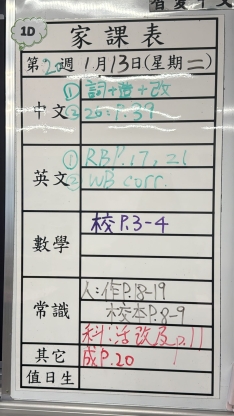 1D
家課表
第20週 1月13日(星期二)
中文 ① 詞+譯+改
② 20: P.39
英文 ① RB P.17, 21
② WB corr.
數學 校 P.3-4
常識 人:作P.18-19
校本P.8-9
科:活改及P.11
其它 成P.20
值日生